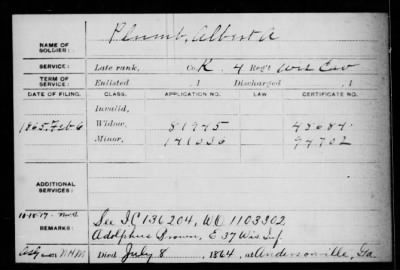 Plumb, Albert A
NAME OF SOLDIER:
SERVICE: Late rank, Co. K, 4 Reg't Wis Cav
TERM OF SERVICE: Enlisted , 1 Discharged , 1
DATE OF FILING. CLASS. APPLICATION NO. CERTIFICATE NO.
Invalid,
1865, Feb 6 Widow, 81945 45684
Minor, 141336 94702
ADDITIONAL SERVICES:
REMARKS: See IC 136204, WC 1103302
Adolphus Brown, E 37 Wis Inf.
Died July 8, 1864, at Andersonville, Ga.